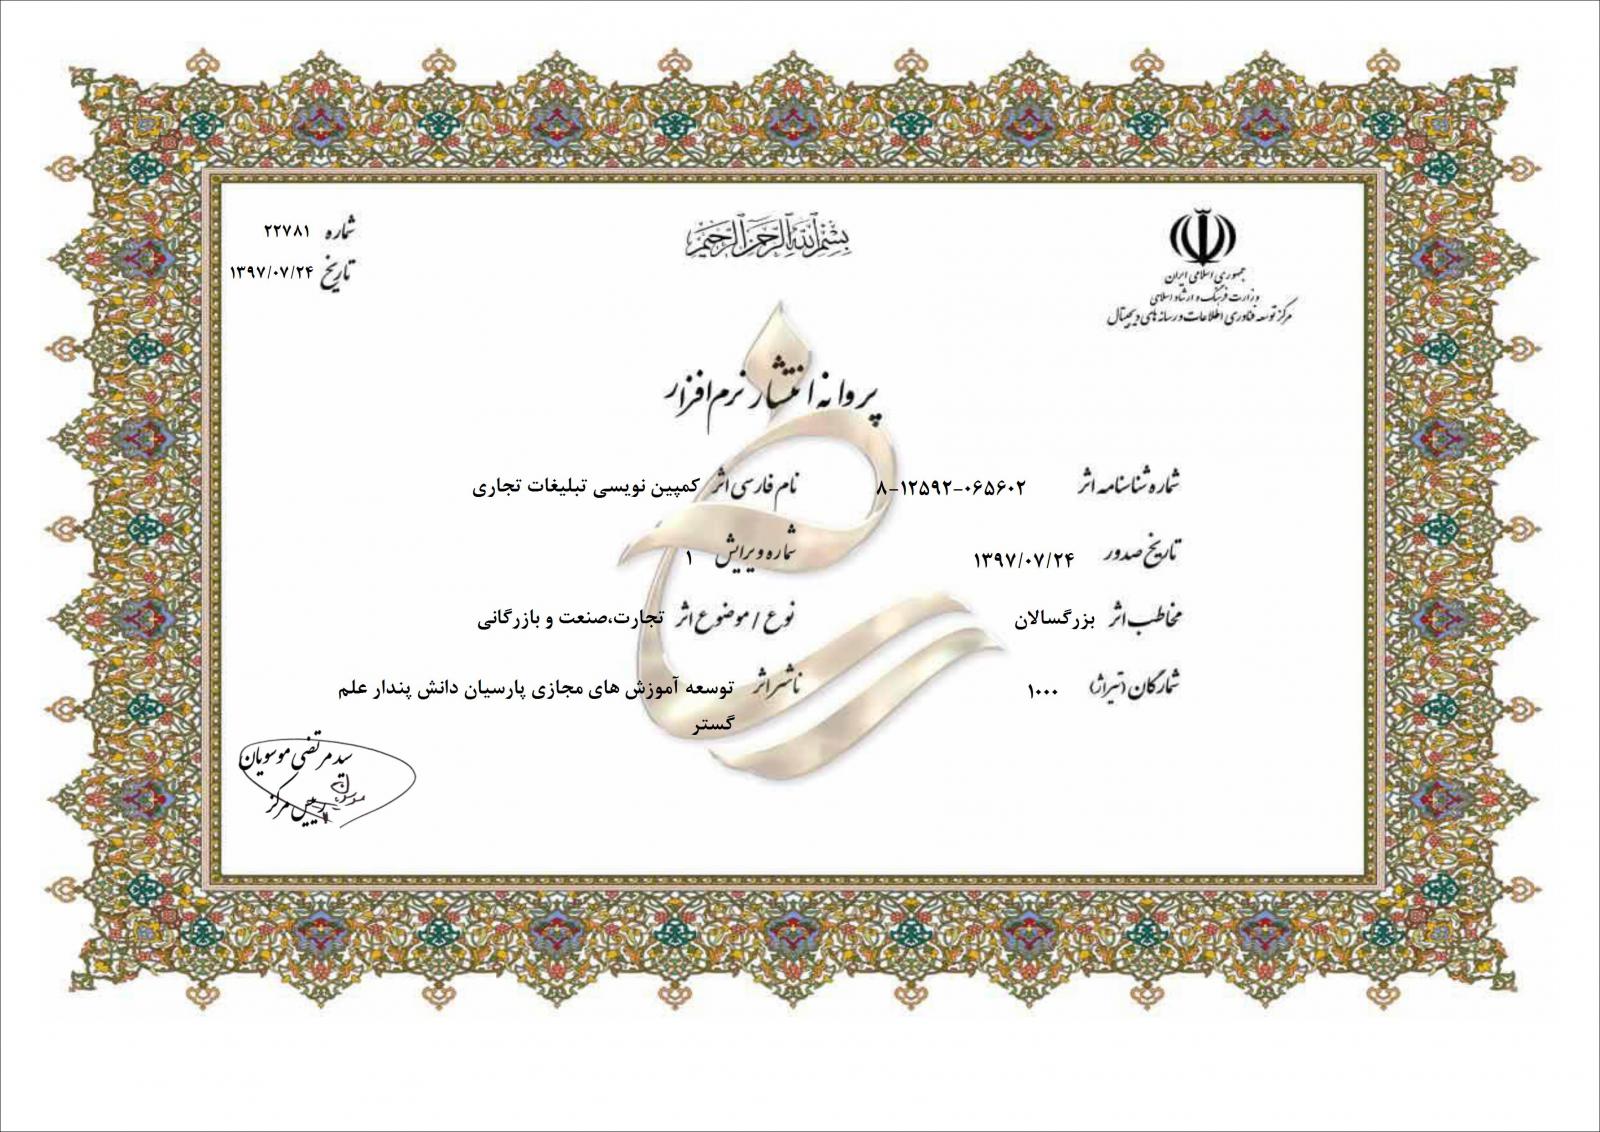 بسم الله الرحمن الرحیم
جمهوری اسلامی ایران
وزارت فرهنگ و ارشاد اسلامی
مرکز توسعه فناوری اطلاعات و رسانه های دیجیتال
شماره ۲۲۷۸۱
تاریخ ۱۳۹۷/۰۷/۲۴
پروانه انتشار نرم افزار
شماره شناسنامه اثر ۸-۱۲۵۹۲-۰۶۵۶۰۲ نام فارسی اثر کمپین نویسی تبلیغات تجاری
تاریخ صدور ۱۳۹۷/۰۷/۲۴ شماره ویرایش ۱
مخاطب اثر بزرگسالان نوع / موضوع اثر تجارت،صنعت و بازرگانی
شمارگان (تیراژ) ۱۰۰۰ ناشر اثر توسعه آموزش های مجازی پارسیان دانش پندار علم
گستر
سید مرتضی موسویان
رییس مرکز